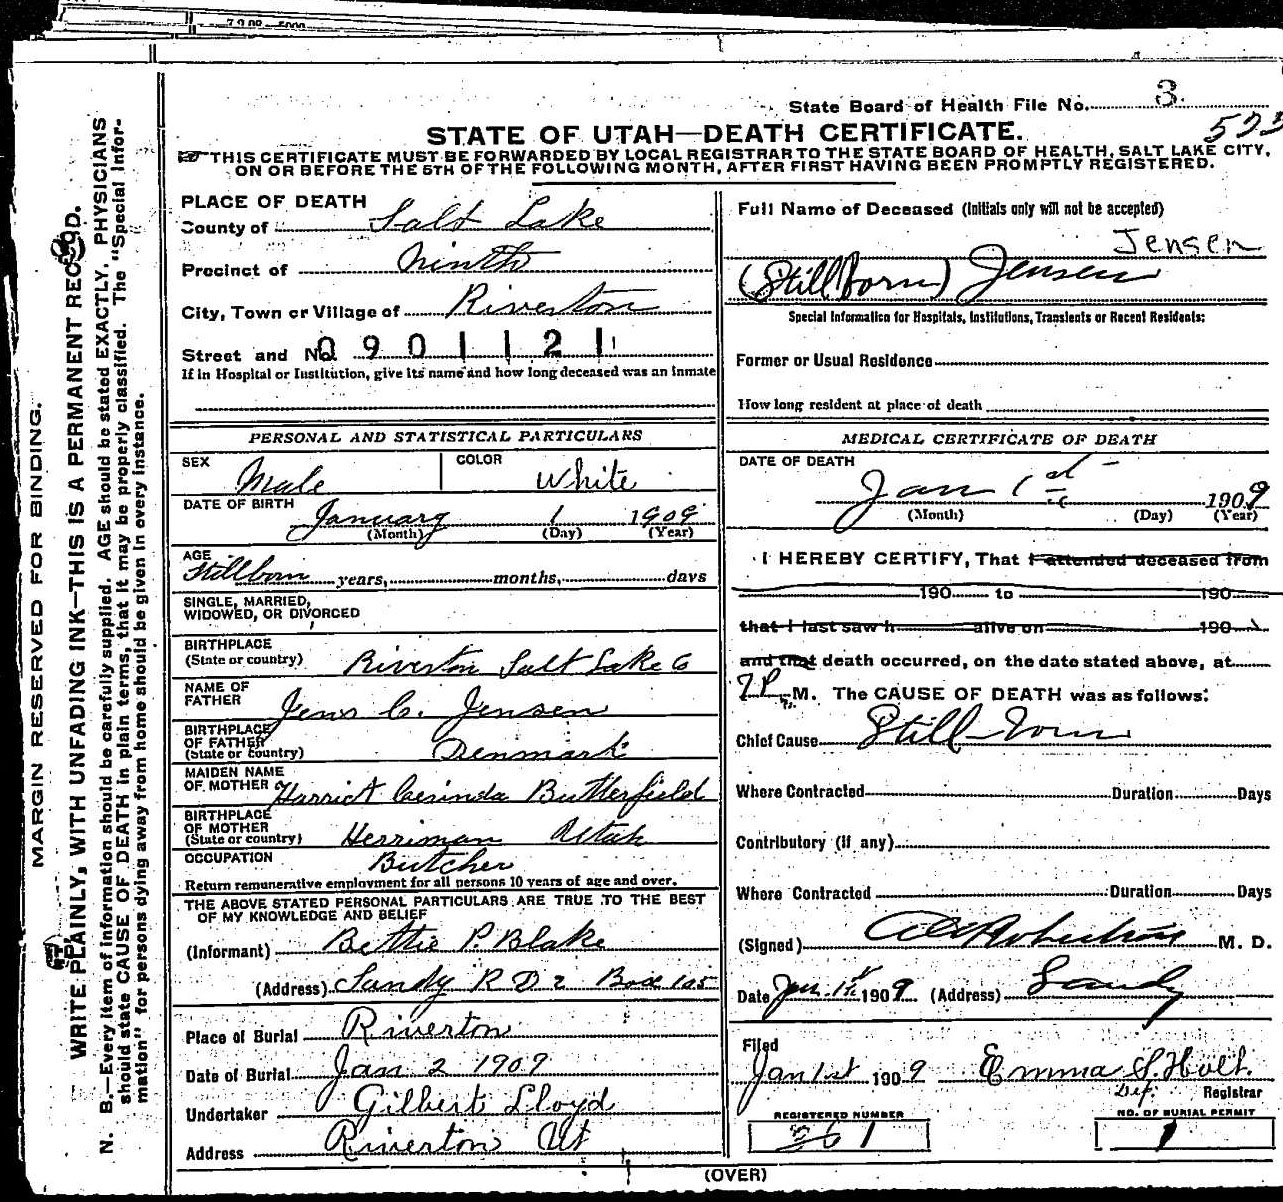 State Board of Health File No. 3.
STATE OF UTAH—DEATH CERTIFICATE.
THIS CERTIFICATE MUST BE FORWARDED BY LOCAL REGISTRAR TO THE STATE BOARD OF HEALTH, SALT LAKE CITY,
ON OR BEFORE THE 5TH OF THE FOLLOWING MONTH, AFTER FIRST HAVING BEEN PROMPTLY REGISTERED.
MARGIN RESERVED FOR BINDING.
WRITE PLAINLY, WITH UNFADING INK—THIS IS A PERMANENT RECORD.
N. B.—Every item of information should be carefully supplied. AGE should be stated EXACTLY. PHYSICIANS
should state CAUSE OF DEATH in plain terms, that it may be properly classified. The "Special Infor-
mation" for persons dying away from home should be given in every instance.
PLACE OF DEATH
County of Salt Lake
Precinct of Ninth
City, Town or Village of Riverton
Street and No. 0901121
If in Hospital or Institution, give its name and how long deceased was an inmate
PERSONAL AND STATISTICAL PARTICULARS
SEX Male COLOR White
DATE OF BIRTH January 1 1909
(Month) (Day) (Year)
AGE
Stillborn years, months, days
SINGLE, MARRIED,
WIDOWED, OR DIVORCED
BIRTHPLACE
(State or country) Riverton Salt Lake Co
NAME OF
FATHER Jens C. Jensen
BIRTHPLACE
OF FATHER
(State or country) Denmark
MAIDEN NAME
OF MOTHER Harriet Butterfield
BIRTHPLACE
OF MOTHER
(State or country) Herriman Utah
OCCUPATION Butcher
Return remunerative employment for all persons 10 years of age and over.
THE ABOVE STATED PERSONAL PARTICULARS ARE TRUE TO THE BEST
OF MY KNOWLEDGE AND BELIEF
(Informant) Bettie P. Blake
(Address) Sandy R D 2 Box 105
Place of Burial Riverton
Date of Burial Jan 2 1909
Undertaker Gilbert Lloyd
Address Riverton Ut
Full Name of Deceased (Initials only will not be accepted)
Jensen
(Stillborn) Jensen
Special Information for Hospitals, Institutions, Transients or Recent Residents:
Former or Usual Residence
How long resident at place of death
MEDICAL CERTIFICATE OF DEATH
DATE OF DEATH
Jan 1st 1909
(Month) (Day) (Year)
I HEREBY CERTIFY, That I attended deceased from
190 to 190
that I last saw h alive on 190
and that death occurred, on the date stated above, at
7 P. M. The CAUSE OF DEATH was as follows:
Chief Cause Still-born
Where Contracted Duration Days
Contributory (if any)
Where Contracted Duration Days
(Signed) Robertson M. D.
Date Jan. 1st 1909 (Address) Sandy
Filed
Jan 1st 1909 Emma S. Holt.
Dep. Registrar
REGISTERED NUMBER
361
NO. OF BURIAL PERMIT
1
(OVER)